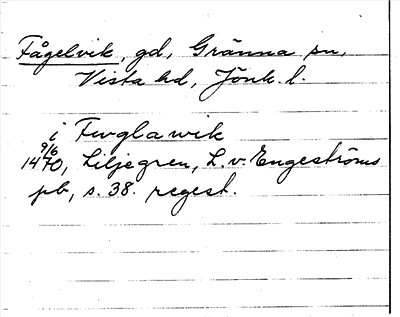 Fågelvik, gd, Gränna sn,
Vista hd, Jönk. l.
i Fwglawik
9/6
1470, Liljegren, L. v. Engeströms
pb, s. 38. regest.